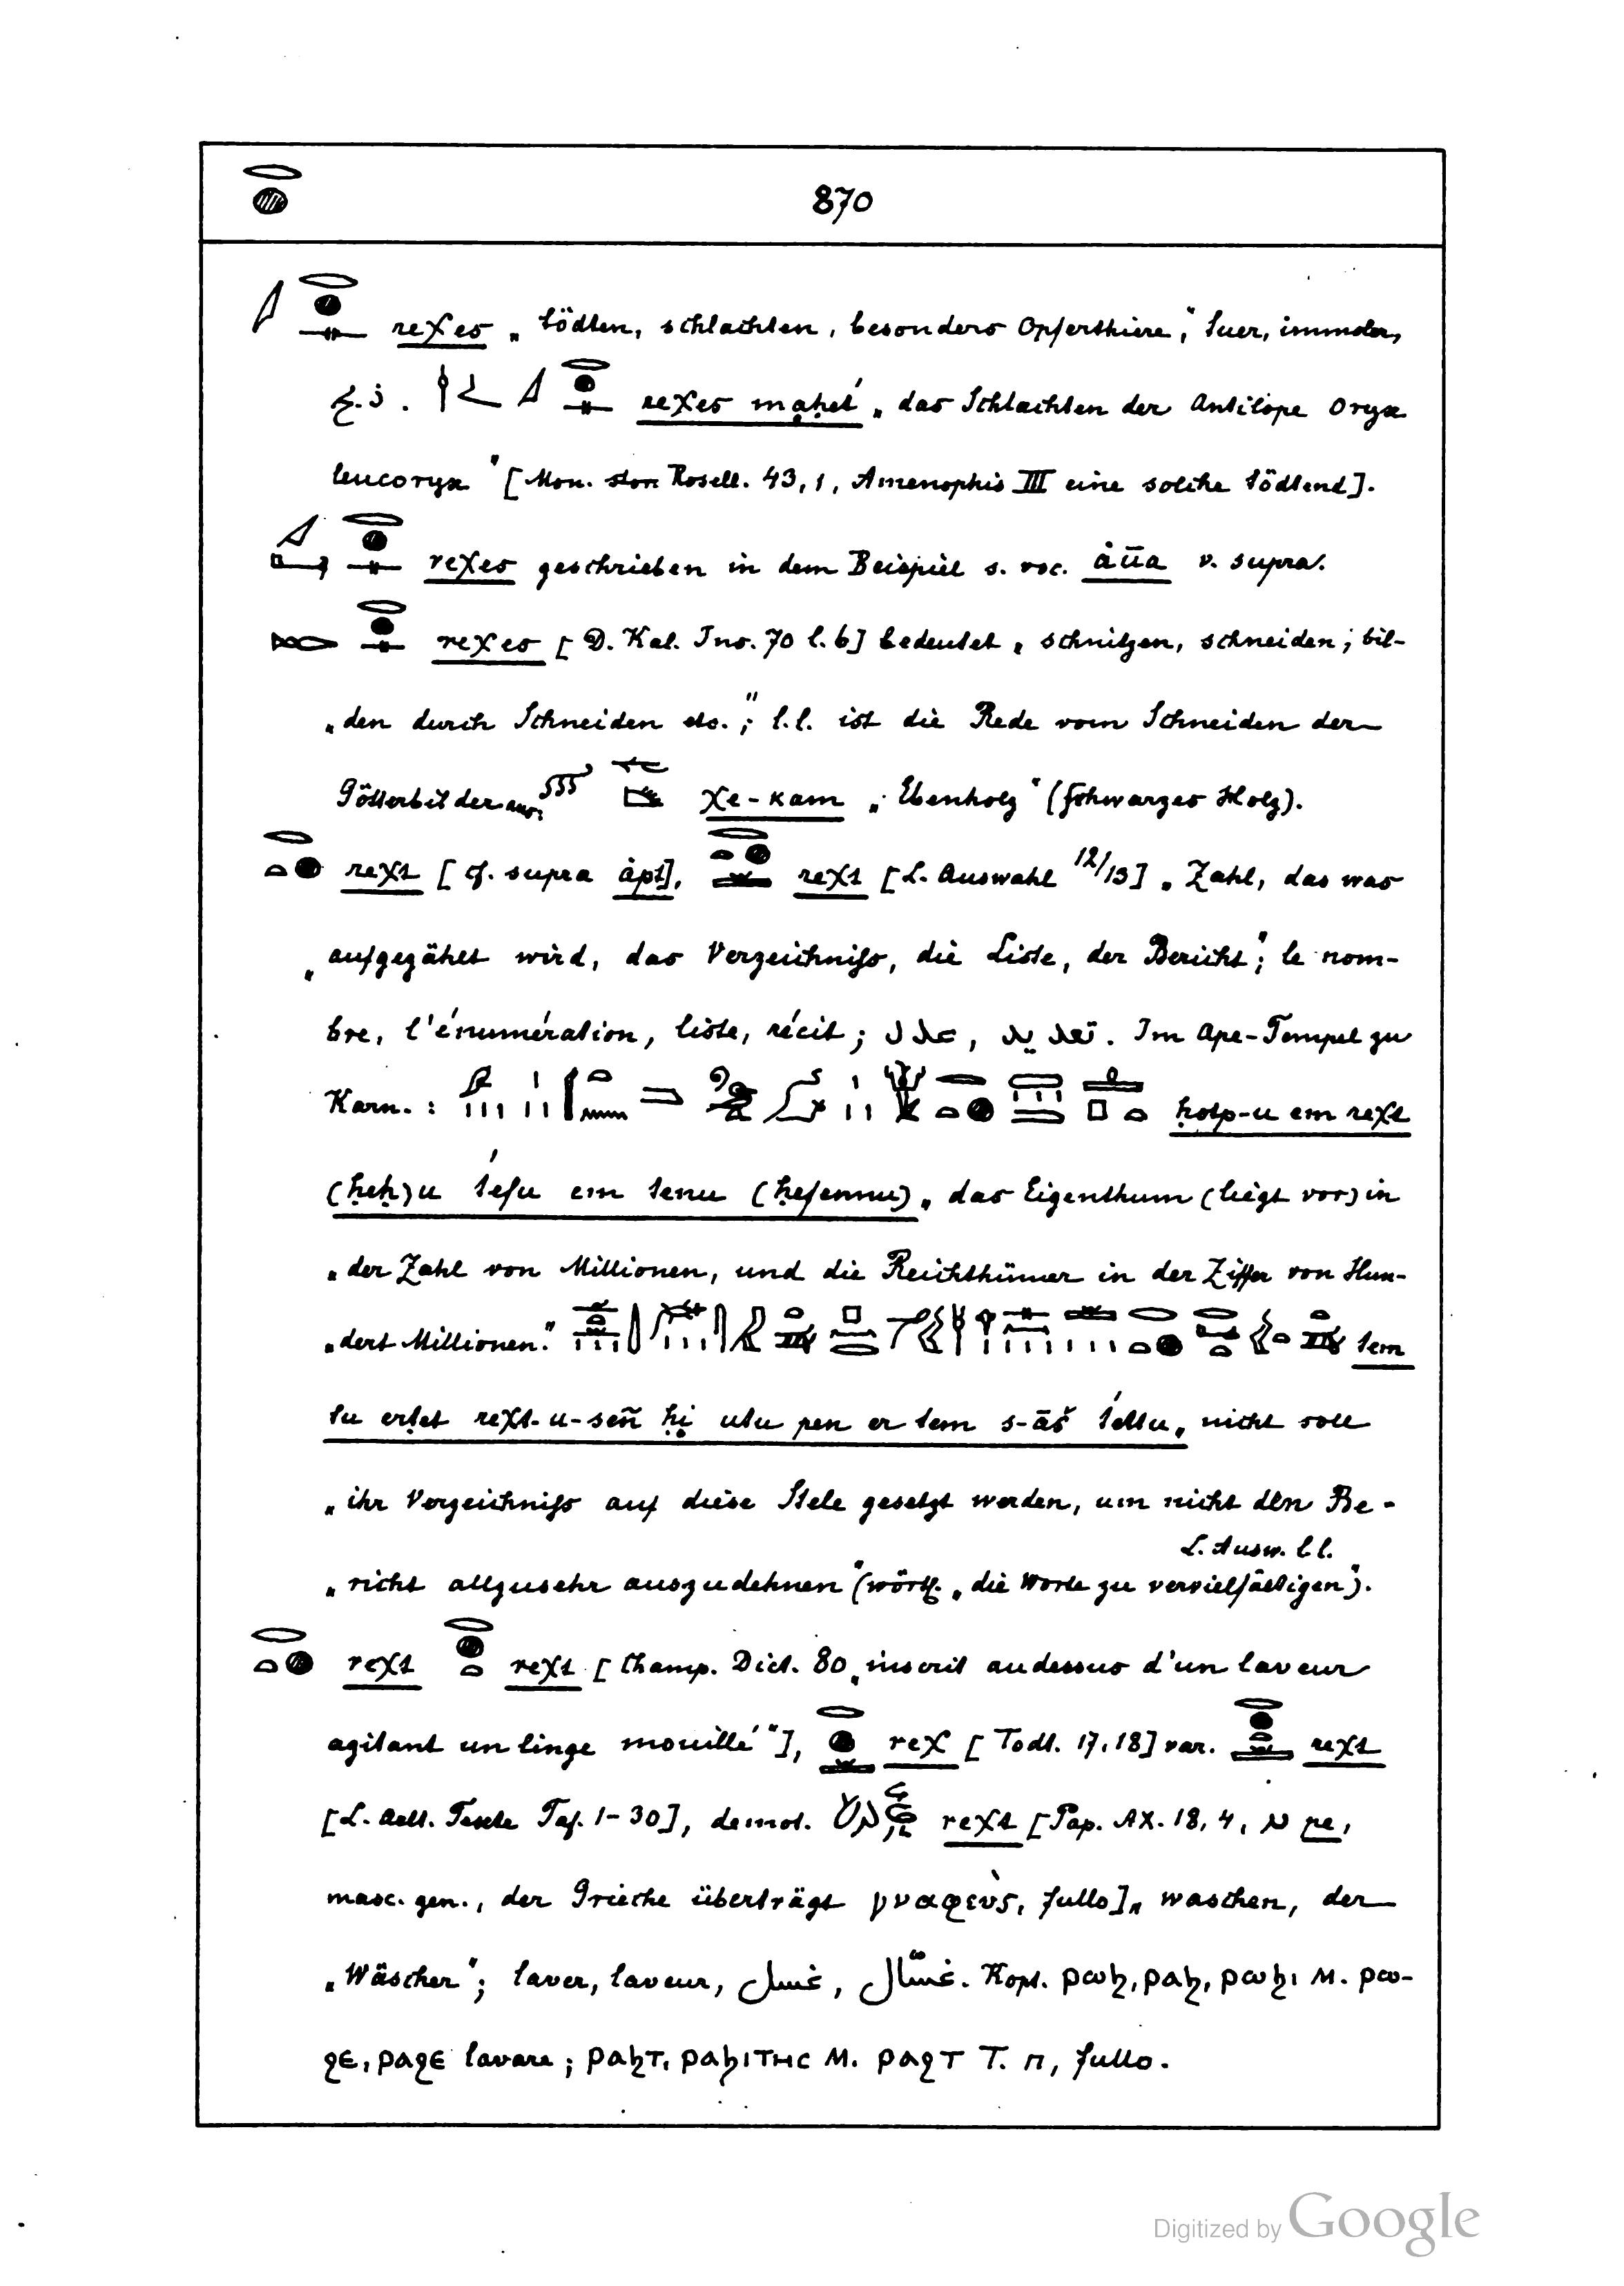 870
reχes „ tödten, schlachten, besonders Opferthiere“, tuer, immoler,
ذبح. reχes maḥeť „ das Schlachten der Antilope Oryx
leucoryx “ [Mon. stor. Rosell. 43, 1, Amenophis III eine solche tödtend].
reχes geschrieben in dem Beispiel s. voc. v. supra.
reχes [ D. Kal. Ins. 70 l. b] bedeutet „ schnitzen, schneiden; bil-
„ den durch Schneiden etc.“; l.l. ist die Rede vom Schneiden der
Götterbilder aus: χe-kam „ Ebenholz “ (schwarzes Holz).
reχt [ cf. supra ȧpt], reχt [L. Auswahl 12/13] „ Zahl, das was
„ aufgezählt wird, das Verzeichniss, die Liste, der Bericht“; le nom-
bre, l'énumération, liste, récit; عدد , تعديد. Im Ape-Tempel zu
Karn. : ḥotp-u em reχt
(ḥeḥ)u ťefu em tenu (ḥefennu) „ das Eigenthum (liegt vor) in
„ der Zahl von Millionen, und die Reichthümer in der Ziffer von Hun-
„ dert Millionen.“ tem
tu erṭet reχt-u-sen ḥi utu pen er tem s-āš ťettu „ nicht soll
„ ihr Verzeichniss auf diese Stele gesetzt werden, um nicht den Be-
L. Ausw. l.l.
„ richt allzusehr auszudehnen “ (wörtl. „ die Worte zu vervielfältigen“).
reχt reχt [ Champ. Dict. 80 „ inscrit audessus d'un laveur
agitant un linge mouillé “], reχ [ Todt. 17, 18] var. reχt
[L. Aelt. Texte Taf. 1-30], demot. reχt [Pap. AX. 18, 4, pe,
masc. gen., der Grieche überträgt γναφεὺς, fullo] „ waschen, der
„ Wäscher “; laver, laveur, غسل , غسّال. Kopt. ⲣⲱϧ, ⲣⲁϧ, ⲣⲱϧⲓ M. ⲣⲱ-
ϩⲉ, ⲣⲁϩⲉ lavare; ⲣⲁϧⲧ, ⲣⲁϧⲓⲧⲏⲥ M. ⲣⲁϩⲧ T. ⲡ, fullo.
Digitized by Google